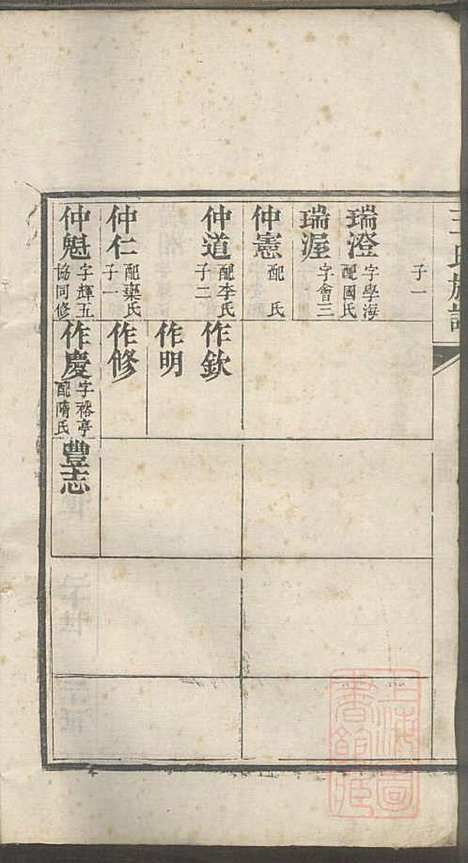 王氏族譜
子一
瑞澄 字學海 配國氏
瑞渥 字會三
仲憲 配氏
仲道 配李氏 子二
作欽
作明
仲仁 配藁氏 子一
作修
仲魁 字輝五 協同修
作慶 字裕亭 配隋氏
豊志
上海圖書館藏